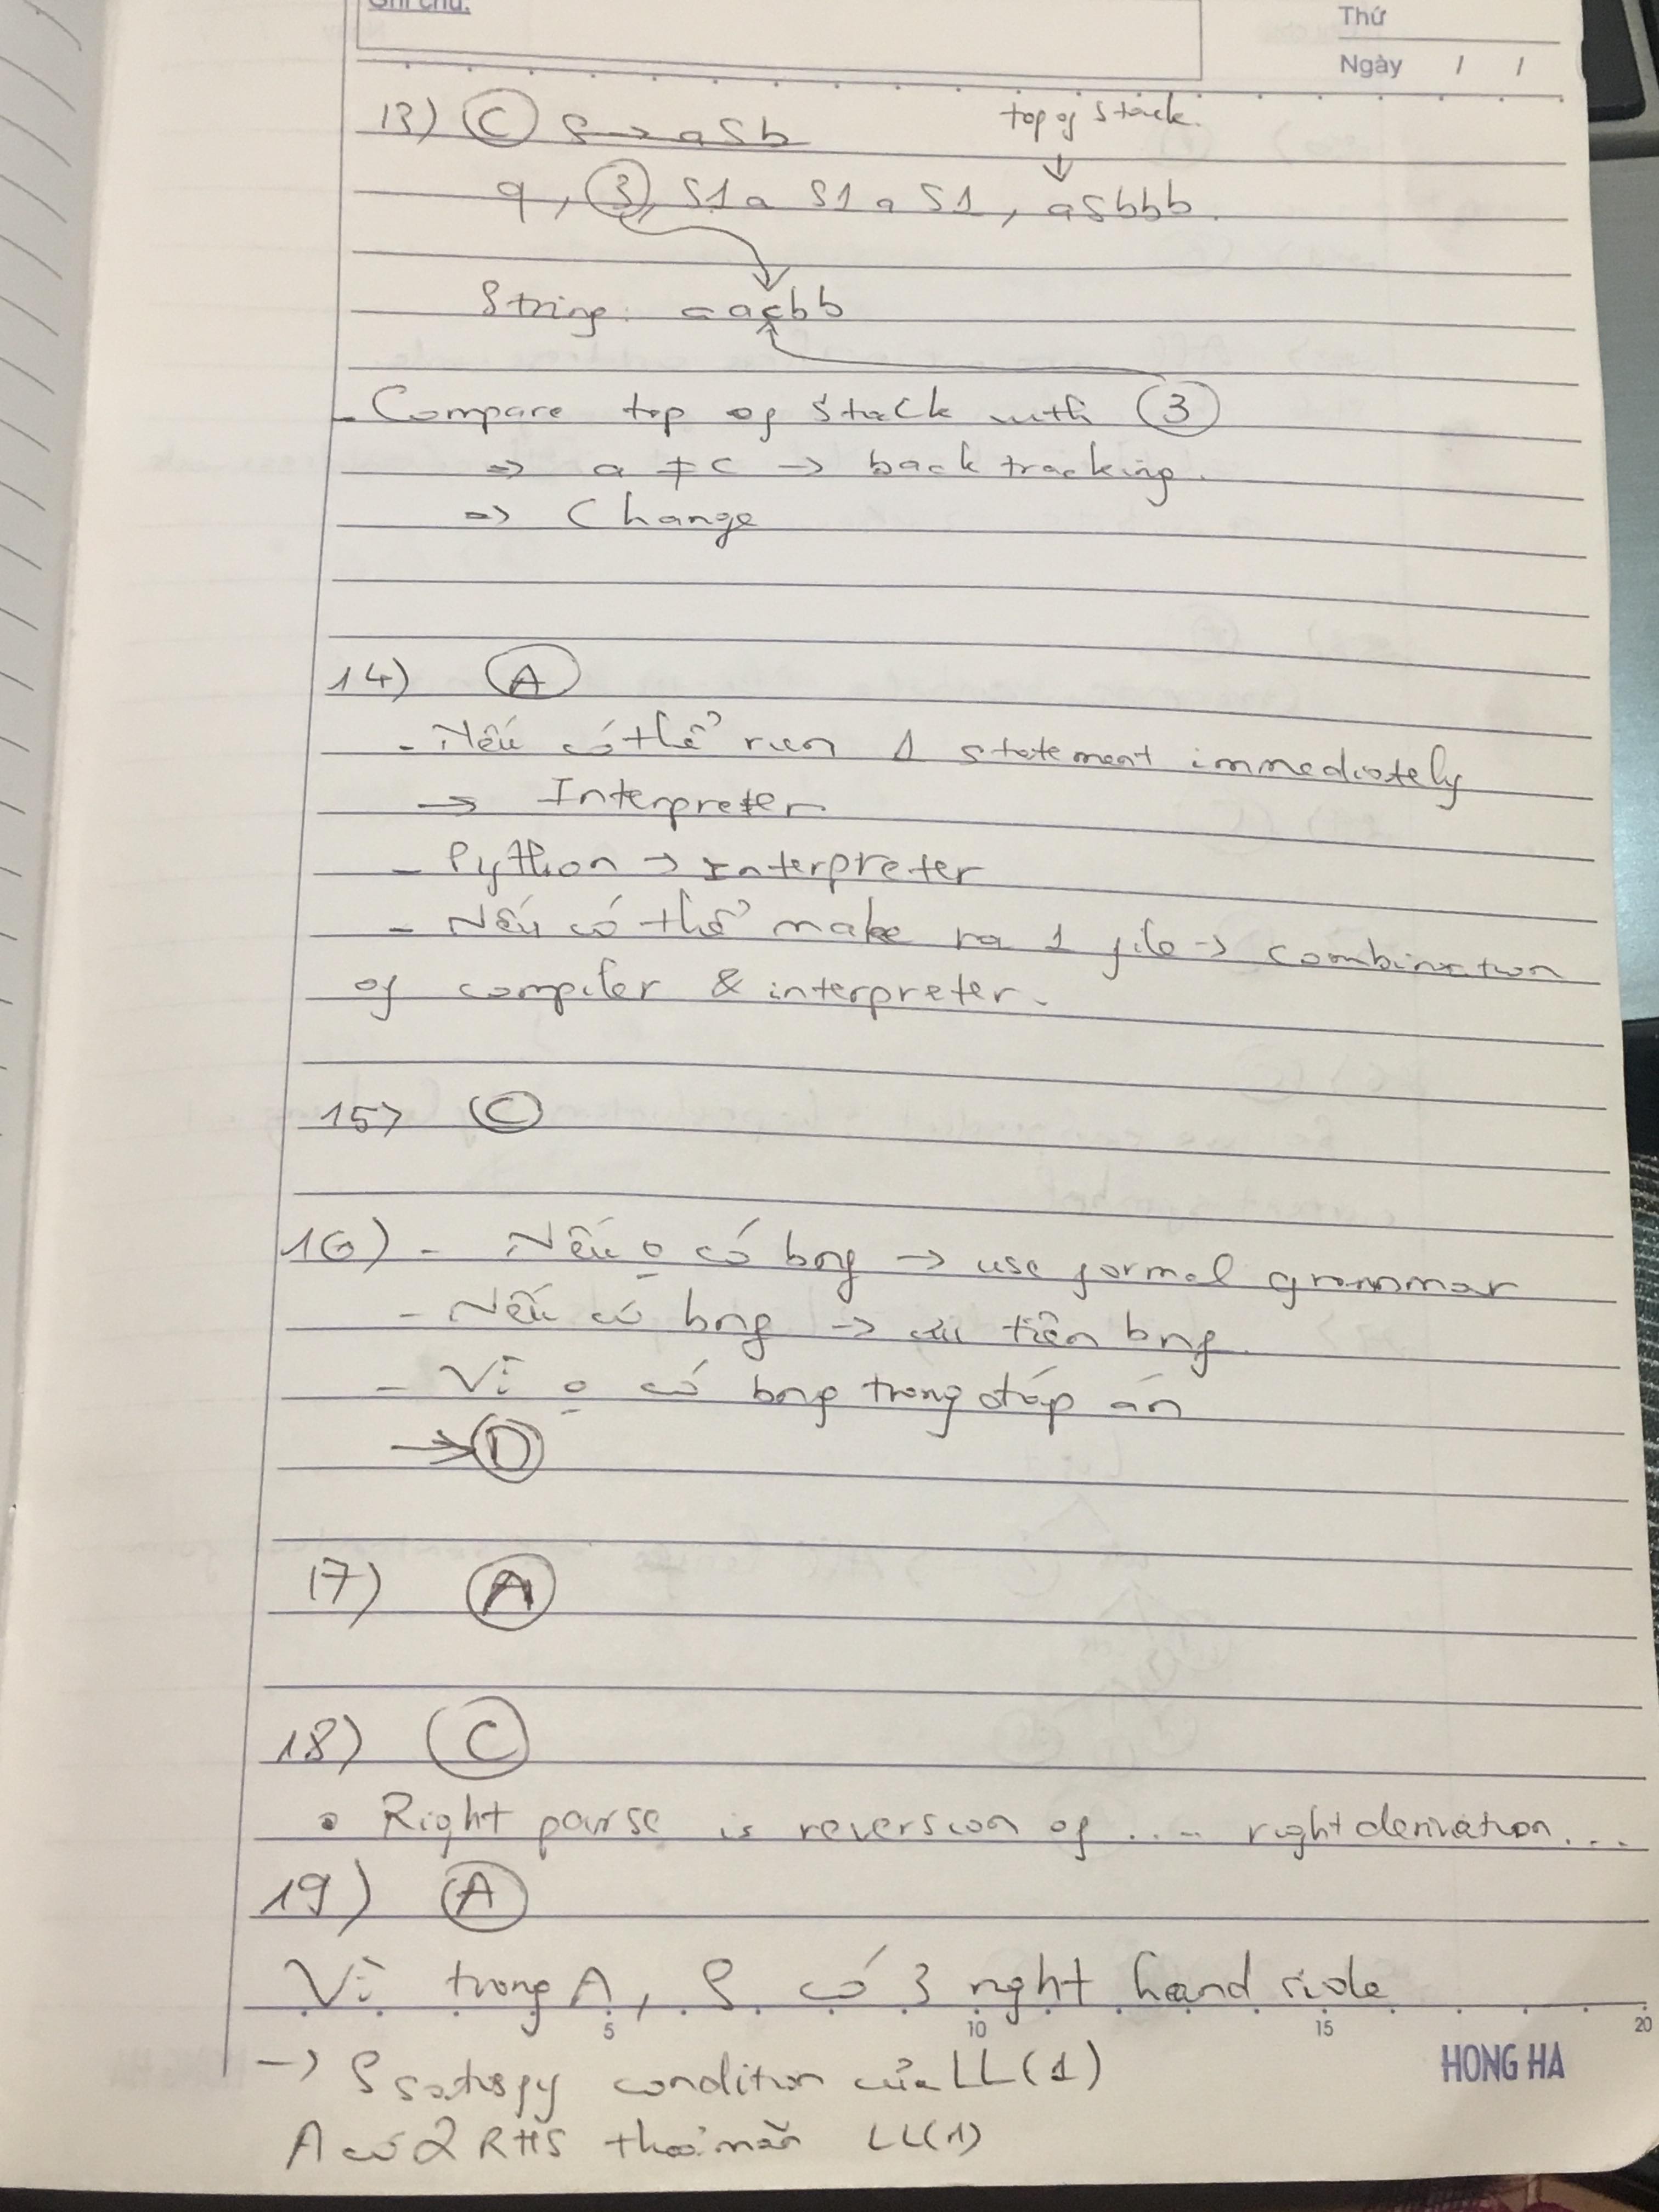 Ghi chú:
Thứ
Ngày / /
13) C S → aSb
top of stack.
q, 3, S1a S1a S1, aSbbb.
String: aacbb
- Compare top of stack with 3
=> a ≠ c → backtracking.
=> Change
14) A
- Nếu có thể run 1 statement immediately
→ Interpreter.
- Python → Interpreter
- Nếu có thể make ra 1 file → combination
of compiler & interpreter.
15) C
16) - Nếu o có bnf → use formal grammar
- Nếu có bnf → ưu tiên bnf.
- Vì o có bnf trong đáp án
→ D
17) A
18) C
• Right parse is reversion of .... right derivation...
19) A
Vì trong A, S có 3 right hand side
5 10 15 20
→ S satisfy condition của LL(1)
HONG HA
A có 2 RHS thoả mãn LL(1)